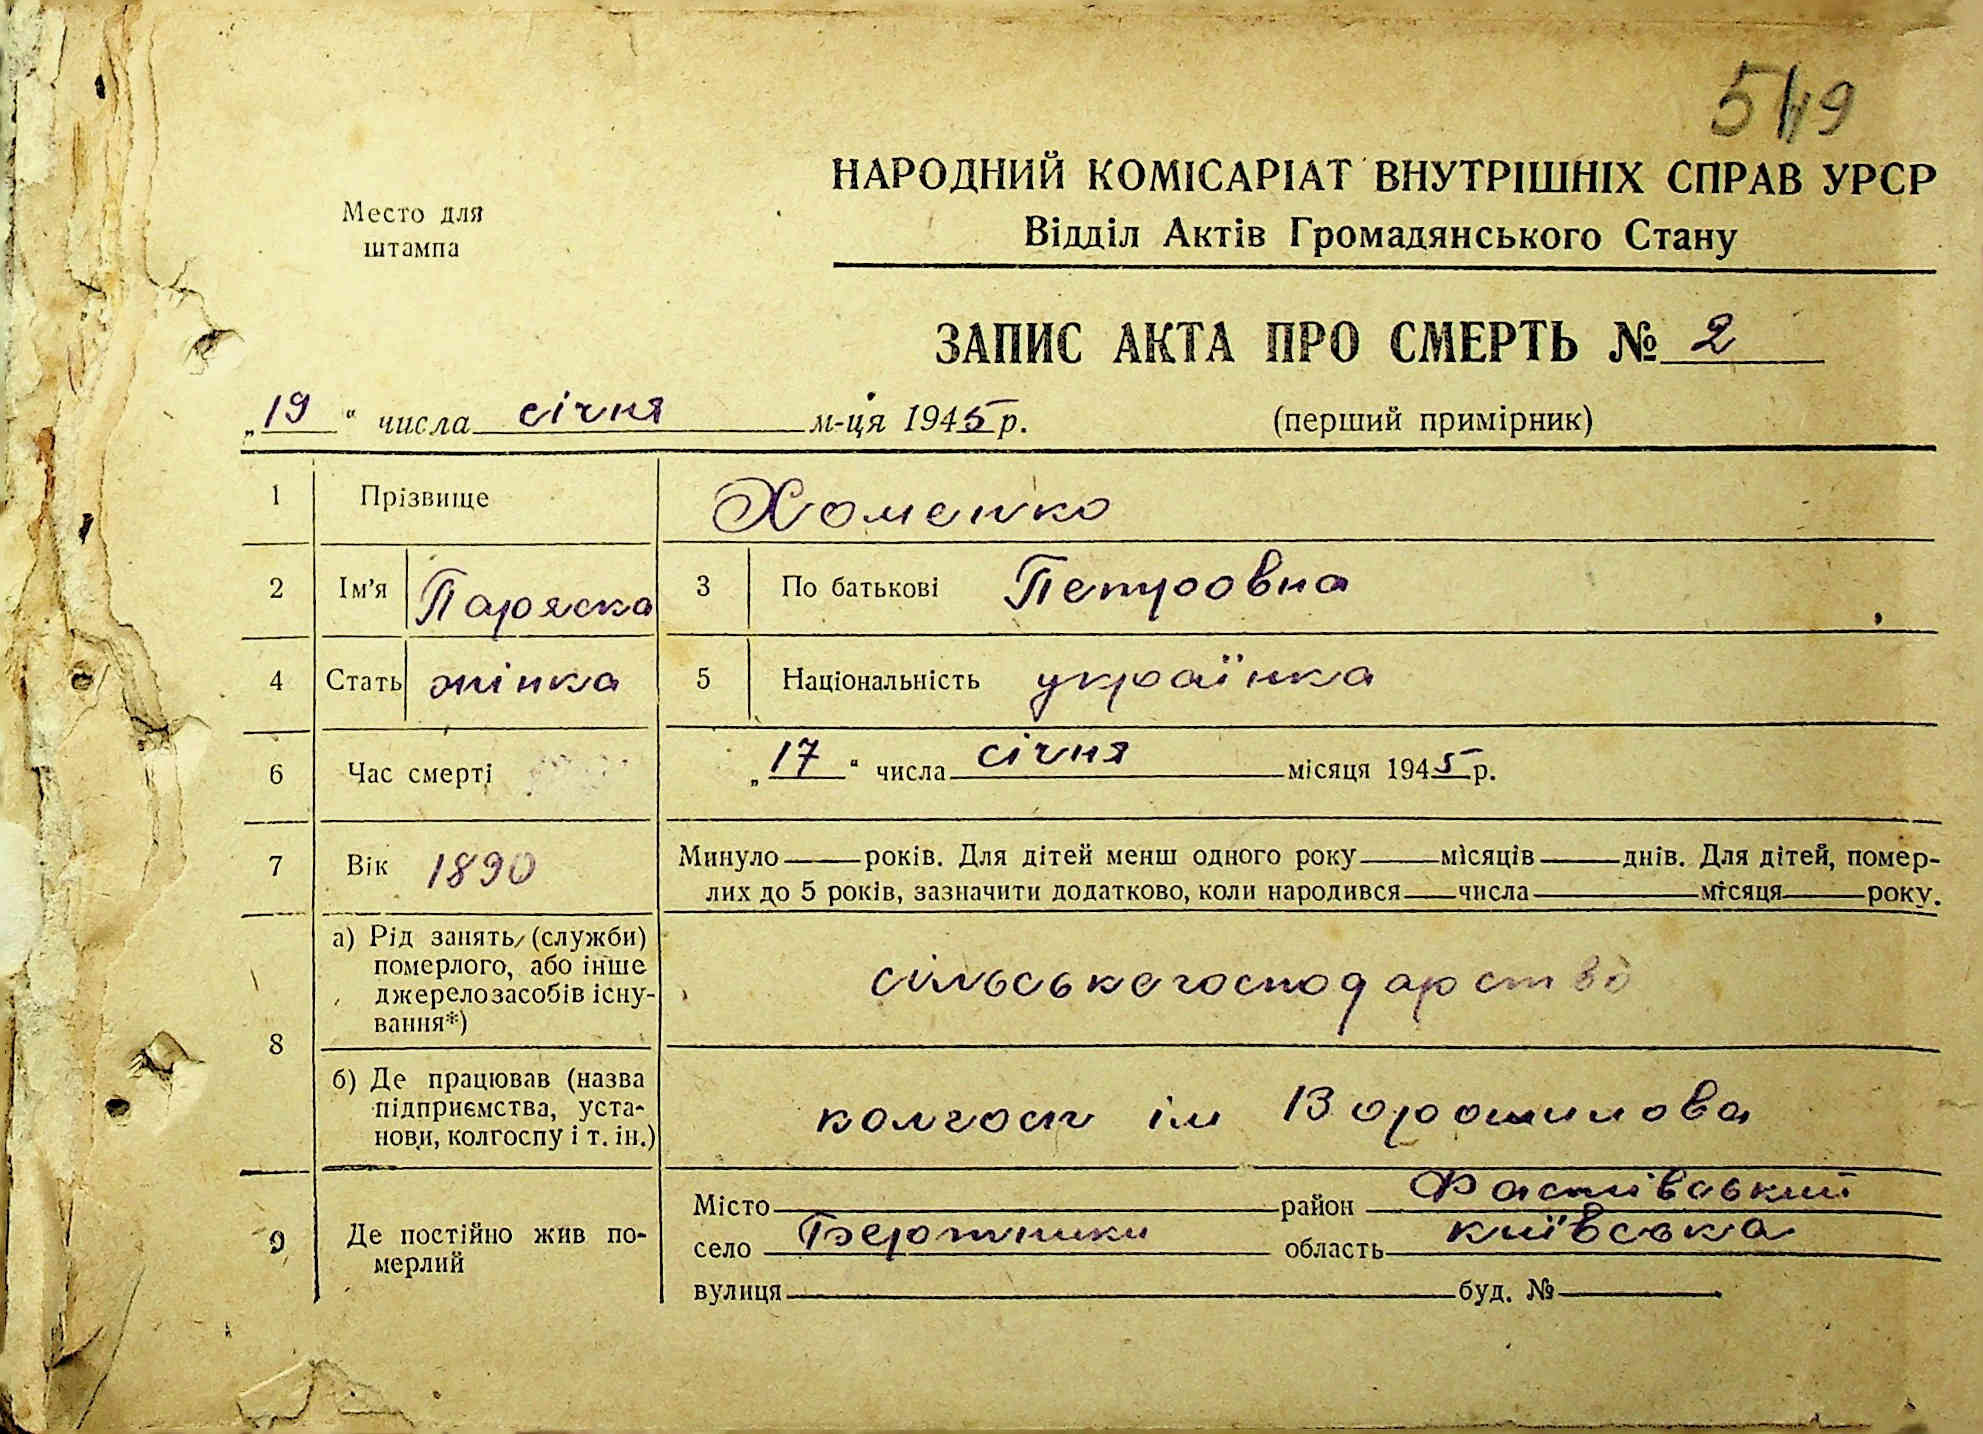 549
Место для
штампа
НАРОДНИЙ КОМІСАРІАТ ВНУТРІШНІХ СПРАВ УРСР
Відділ Актів Громадянського Стану
ЗАПИС АКТА ПРО СМЕРТЬ № 2
„19“ числа січня м-ця 1945 р. (перший примірник)
1 Прізвище Хоменко
2 Ім'я Параска 3 По батькові Петровна
4 Стать жінка 5 Національність українка
6 Час смерті „17“ числа січня місяця 1945 р.
7 Вік 1890 Минуло років. Для дітей менш одного року місяців днів. Для дітей, помер-
лих до 5 років, зазначити додатково, коли народився числа місяця року.
8 а) Рід занять (служби)
померлого, або інше
джерело засобів існу-
вання*)
сільське господарство
б) Де працював (назва
підприємства, уста-
нови, колгоспу і т. ін.)
колгосп ім Ворошилова
9 Де постійно жив по-
мерлий
Місто район Фастівський
село область київська
вулиця буд. №